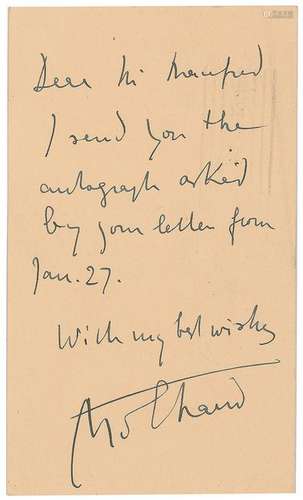 Dear Mr Manfred
I send you the
autograph asked
by your letter from
Jan. 27.
With my best wishes